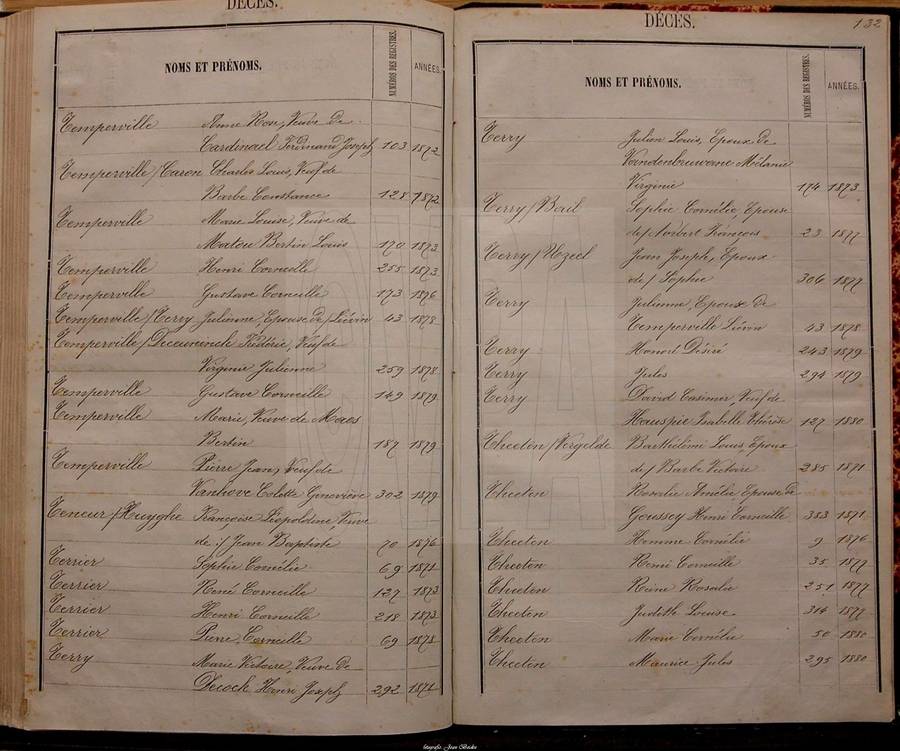 DÉCÈS.
NOMS ET PRÉNOMS.
NUMÉROS DES REGISTRES.
ANNÉES.
Temperville Anne Rose, Veuve de
Cardinael Ferdinand Joseph 103 1872
Temperville / Caron Charles Louis, Veuf de
Barbe Constance 128 1872
Temperville Marie Louise, Veuve de
Marlou Bertin Louis 170 1873
Temperville Henri Corneille 255 1873
Temperville Gustave Corneille 173 1876
Temperville / Terry Julienne, Epouse de / Liévin 43 1878
Temperville / Deceuninck Fréderic, Veuf de
Virginie Julienne 259 1878
Temperville Gustave Corneille 149 1879
Temperville Marie, Veuve de Maes
Bertin 187 1879
Temperville Pierre Jean, Veuf de
Vanhove Colette Geneviève 302 1879
Teneur / Huyghe Françoise Léopoldine, Veuve
de :/ Jean Baptiste 70 1876
Terrier Sophie Cornélie 69 1871
Terrier René Corneille 127 1873
Terrier Henri Corneille 218 1873
Terrier Pierre Corneille 69 1878
Terry Marie Victoire, Veuve de
Decock Henri Joseph 292 1871
DÉCÈS.
132
NOMS ET PRÉNOMS.
NUMÉROS DES REGISTRES.
ANNÉES.
Terry Julien Louis, Epoux de
Vandenbruwaene Mélanie
Virginie 174 1873
Terry / Bail Sophie Cornélie, Epouse
de / Norbert François 23 1877
Terry / Uzeel Jean Joseph, Epoux
de / Sophie 306 1877
Terry Julienne, Epouse de
Temperville Liévin 43 1878
Terry Honoré Désiré 243 1879
Terry Jules 294 1879
Terry David Casimir, Veuf de
Hauspie Isabelle Thérèse 127 1880
Theeten / Vergelde Barthélémi Louis, Epoux
de / Barbe Victoire 285 1871
Theeten Rosalie Amélie, Epouse de
Goussey Henri Corneille 353 1871
Theeten Homme Cornélie 9 1876
Theeten Remi Corneille 35 1877
Theeten Reine Rosalie 251 1877
Theeten Judith Louise 314 1877
Theeten Marie Cornélie 50 1880
Theeten Maurice Jules 295 1880